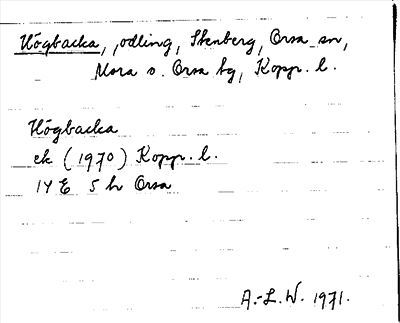 Högbacka, odling, Stenberg, Orsa sn,
Mora o. Orsa tg, Kopp. l.
Högbacka
ek (1970) Kopp. l.
14 E 5 h Orsa
A.-L.W. 1971.